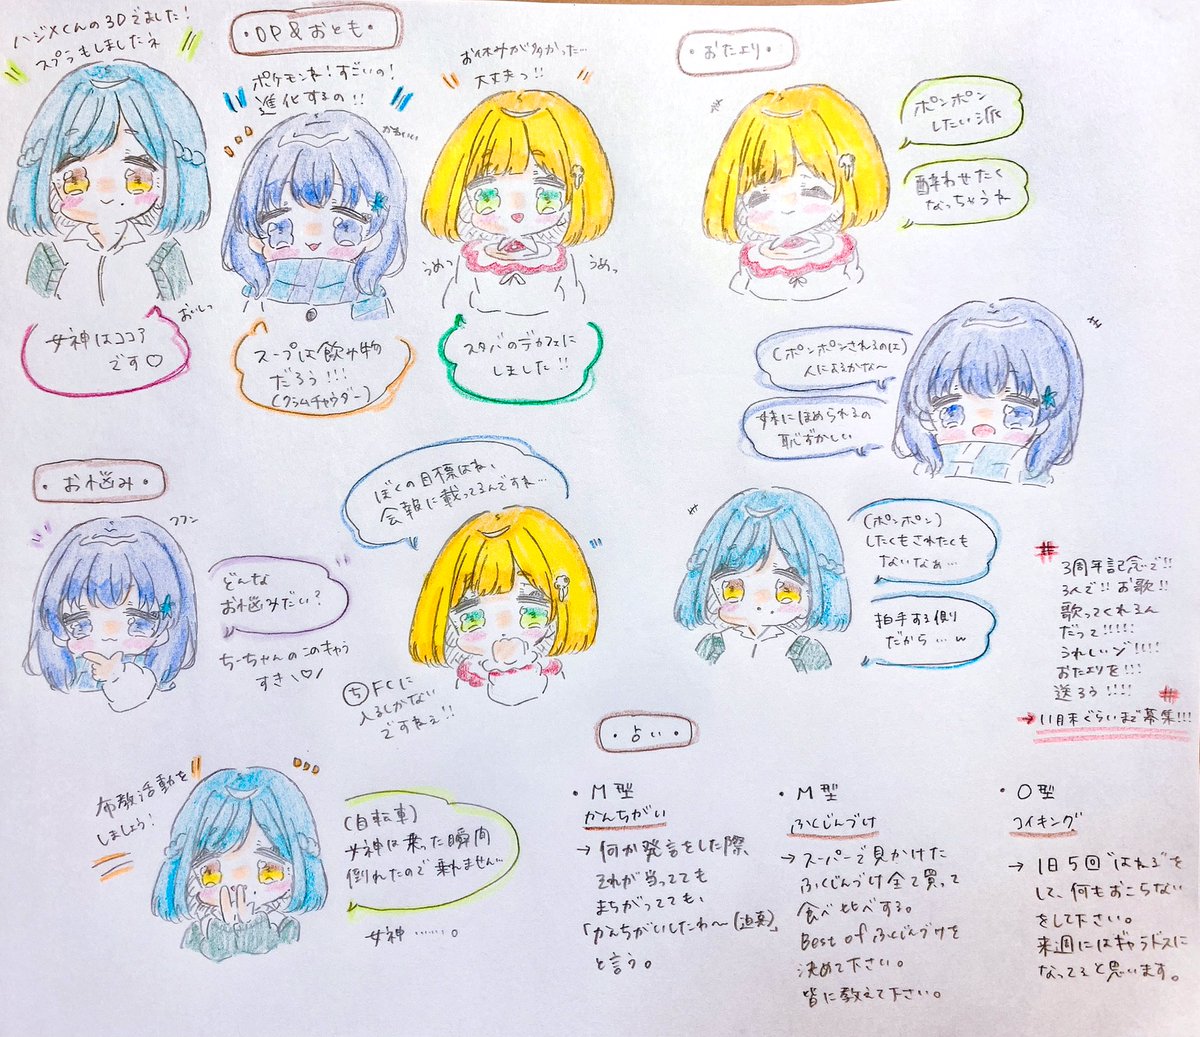 ハジメくんの3Dでました!
スプラもしましたネ
女神はココア
です♡
・OP&おとも・
ポケモンね!すごいの!
進化するの!!
かわいい
おいしっ
スープは飲み物
だろう!!!
(クラムチャウダー)
お休みが多かった…
大丈夫っ!!
うめっ
うめっ
スタバのデカフェに
しました!!
・おたより・
ポンポン
したい派
酔わせたく
なっちゃうね
(ポンポンされるのは)
人によるかな〜
妹にほめられるの
恥ずかしい
(ポンポン)
したくもされたくも
ないなぁ…
拍手する側
だから…w
3周年記念で!!
3人で!!お歌!!
歌ってくれるん
だって!!!!!
うれしいゾ!!!!
おたよりを!!!
送ろう!!!!
→11月末ぐらいまで募集!!!
・お悩み・
フフン
どんな
お悩みだい?
ちーちゃんのこのキャラ
すき♡
ぼくの目標はね、
会報に載ってるんですね…
ち FCに
入るしかない
ですねぇ!!
布教活動を
しましょう!
(自転車)
女神は乗った瞬間
倒れたので乗れません…
女神……。
・占い・
・M型
かんちがい
→何か発言をした際、
それが当ってても
まちがってても、
「かんちがいしたわ〜(迫真)」
と言う。
・M型
ふくじんづけ
→スーパーで見かけた
ふくじんづけ全て買って
食べ比べする。
Best of ふくじんづけを
決めて下さい。
皆に教えて下さい。
・O型
コイキング
→1日5回"はねる"を
して、何もおこらない
をして下さい。
来週にはギャラドスに
なってると思います。